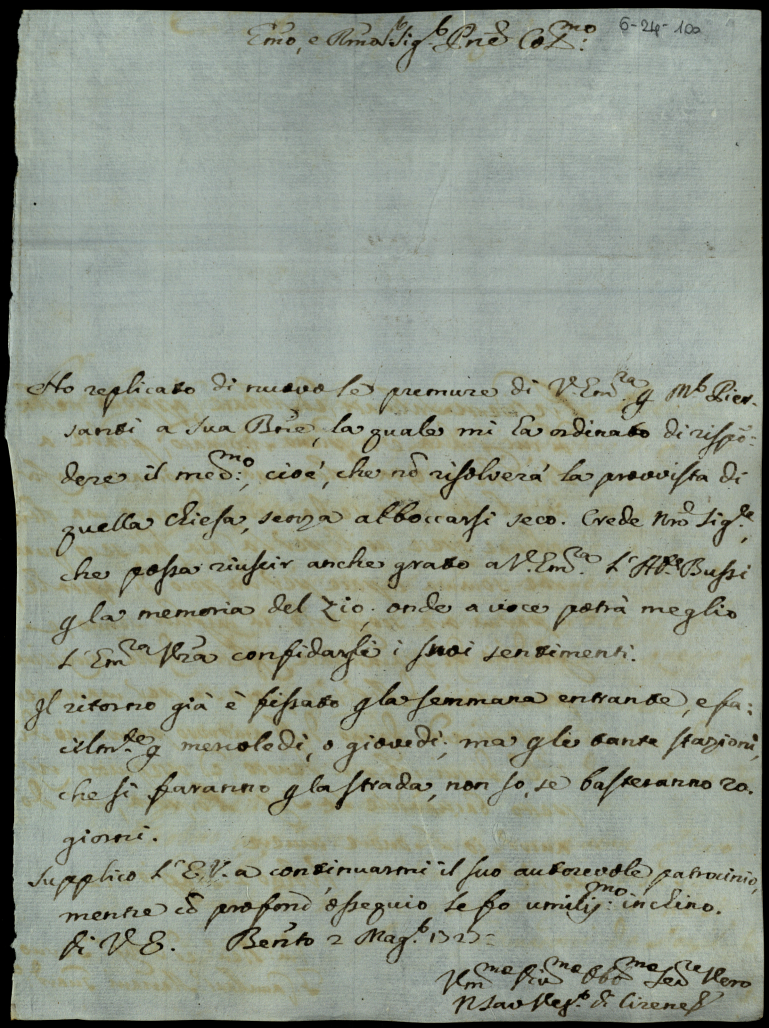 6-24-100
Emo, e Rmo Sig.r Pne Colmo:
Ho replicato di nuovo le premure di V. Emza p Mr Pier-
santi a Sua Bne, la quale mi ha ordinato di rispõ-
dere il medmo:, cioè, che nõ risolverà la provvista di
quella chiesa, senza abboccarsi seco. Crede Nrõ Sigre,
che possa riuscir anche grato a V. Emza l'Abe Bussi
p la memoria del Zio; onde a voce potrà meglio
l'Emza Vra confidargli i suoi sentimenti.
Il ritorno già è fissato p la semmana entrante, e fa:
cilmte p mercoledì, o giovedì; ma p le tante stazioni,
che si faranno p la strada, non so, se basteranno 20.
giorni.
Supplico l'E. V. a continuarmi il suo autorevole patrocinio,
mentre cõ profond'ossequio le fo umilismo: inchino.
Di V. E. Bento 2 Magº 1727
Vmo Divmo Obbmo Serre Vero
N Sav Vesc. di Cirene